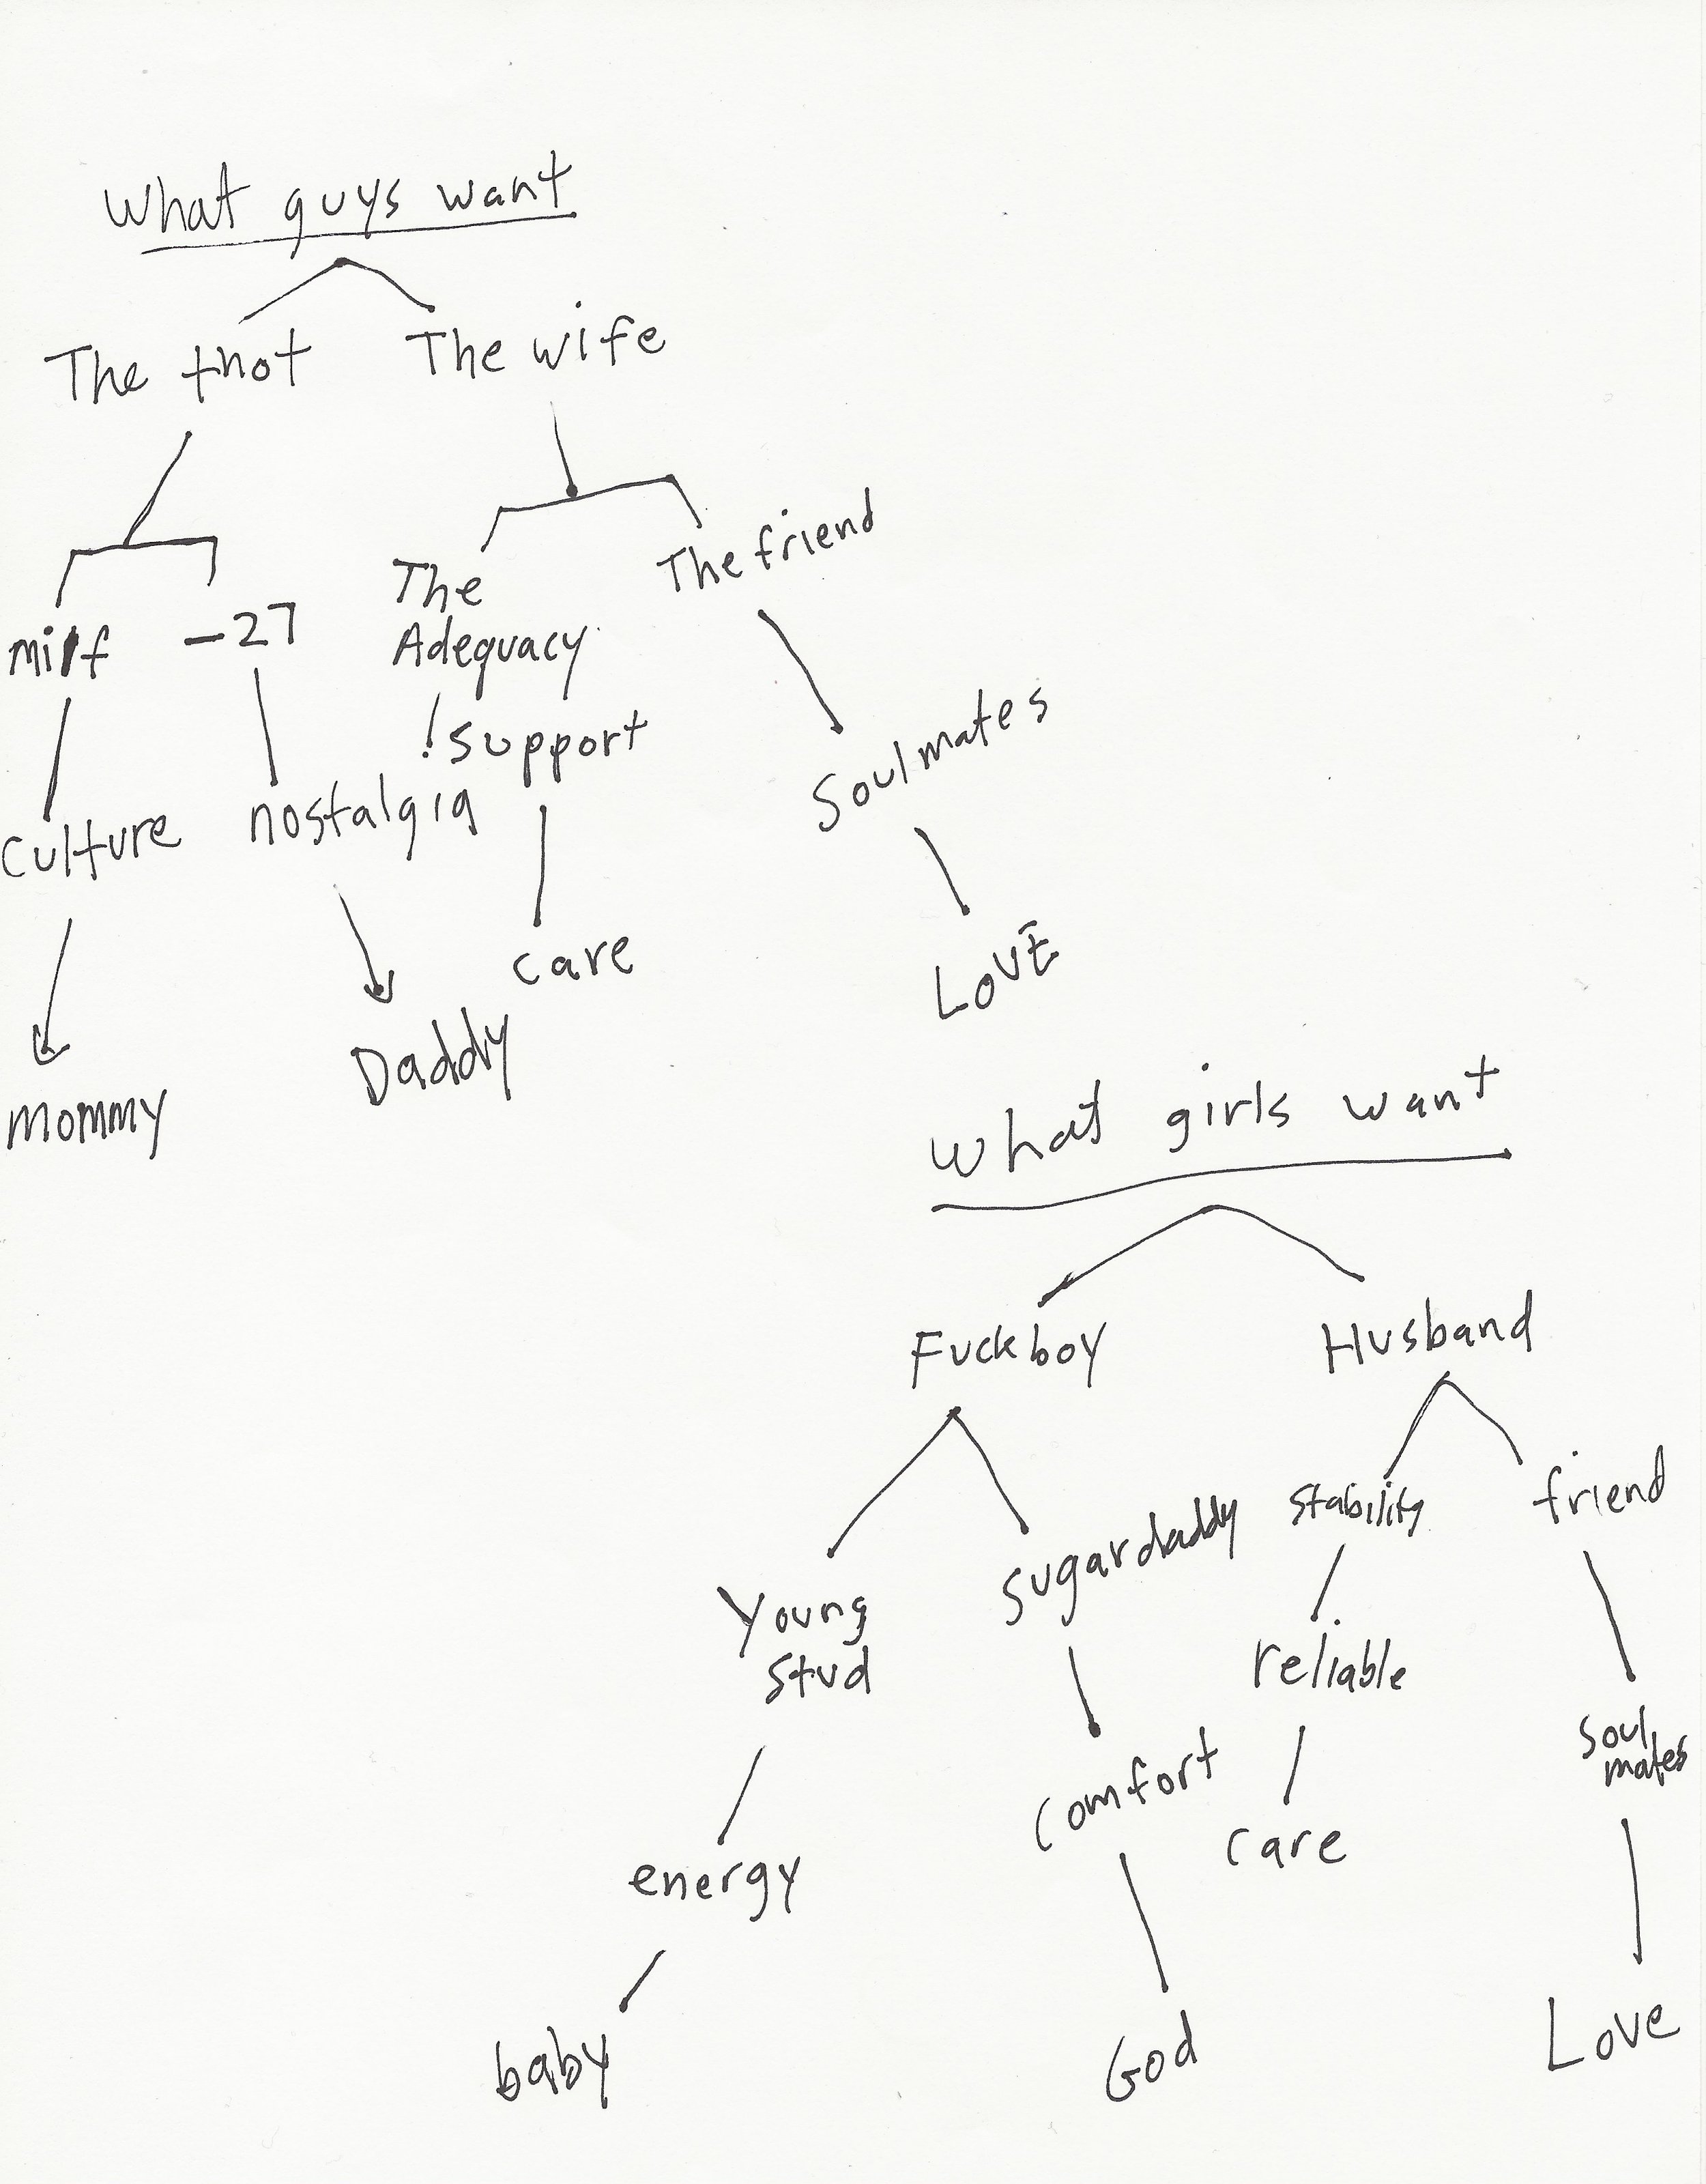 What guys want
The thot
The wife
milf
-27
The
Adequacy
The friend
support
Soulmates
culture
nostalgia
care
LOVE
Daddy
mommy
What girls want
Fuckboy
Husband
Young
stud
sugardaddy
stability
friend
reliable
soul
mates
energy
comfort
care
baby
God
Love